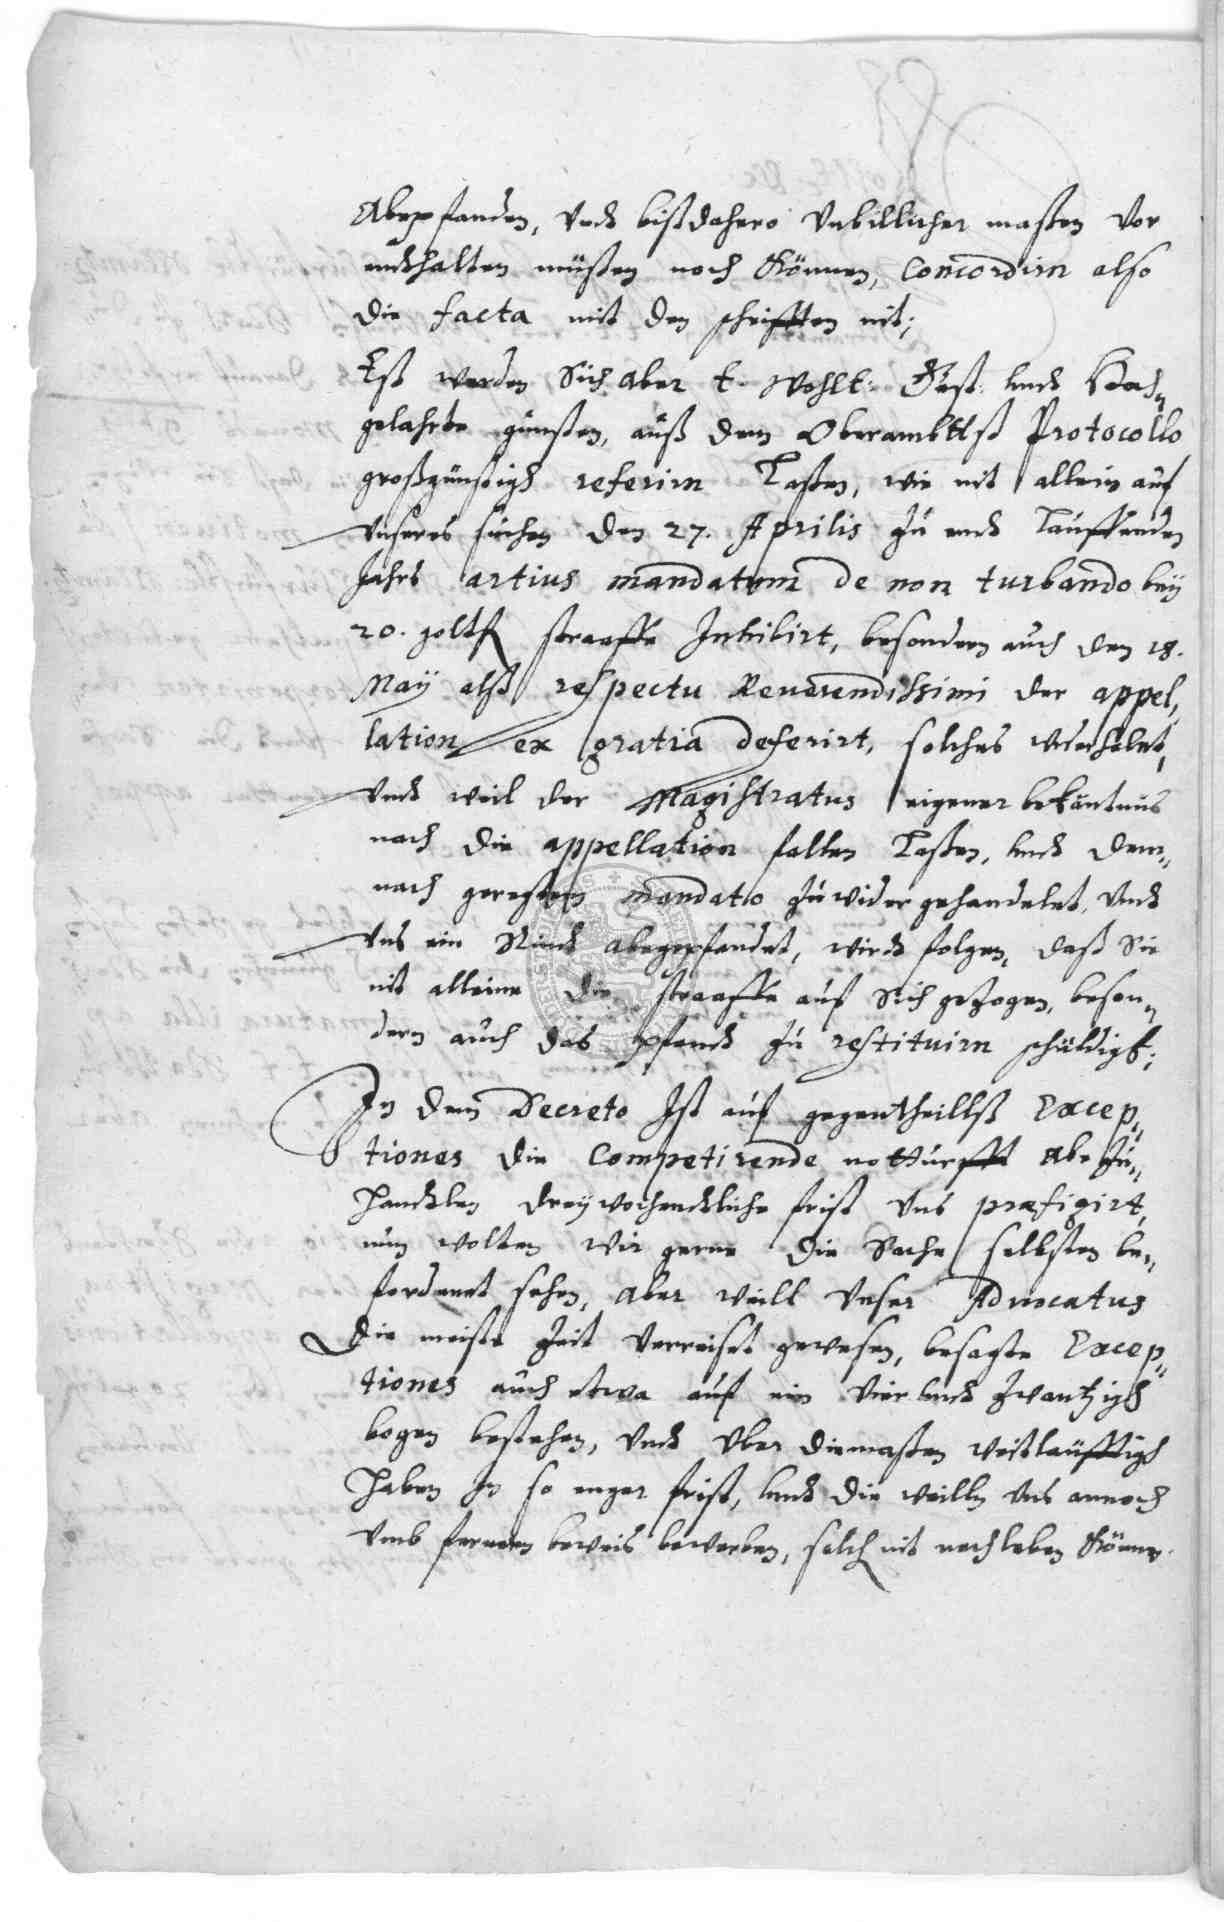 Abepfanden, Undt bißdahero Unbillicher maßen Vor
endthalten müßen noch Können, Concordirn also
die facta mit den schrifften nit;
Eß werden Sich aber E. Wohlt: Gest: undt Hoch„
gelahrte günsten, auß dem Oberambttß Protocollo
großgünstigh referirn Laßen, wie nit allein auf
Unseres süchen den 27. Aprilis zu endt Lauffenden
Jahrs artius mandatum de non turbando bey
20. goltfl straeffe Inhibirt, besondern auch den 18.
May alß respectu Reuerendissimi der appel„
lation ex gratia deferirt, solches wiederholet,
Undt weil der Magistratus eigener bekäntnus
nach die appellation fallen Laßen, undt dem„
nach geregtem mandato zuwider gehandelet, Undt
Uns ein Rindt abegepfandet, wirdt folgen, daß Sie
nit alleine die straeffe auf Sich gezogen, beson„
dern auch das pfandt zu restituirn schüldigh;
In dem Decreto Ist auf gegentheillß Excep„
tiones die Competirende notturfft Abezu„
handtlen dreywochendtliche frist Uns præfigirt,
nun wolten wir gerne die Sache selbsten be„
fordeert sehen, aber weill Unser Advocatus
die meiste Zeit Verreiset gewesen, besagte Excep„
tiones auch etwa auf ein Vier undt zwantzigh
bogen bestehen, Undt Uber diemaßen weitläufftigh
haben In so enger frist, undt die weilln Uns annoch
Umb fernern beweis bewerben, solch nit nachleben Können.